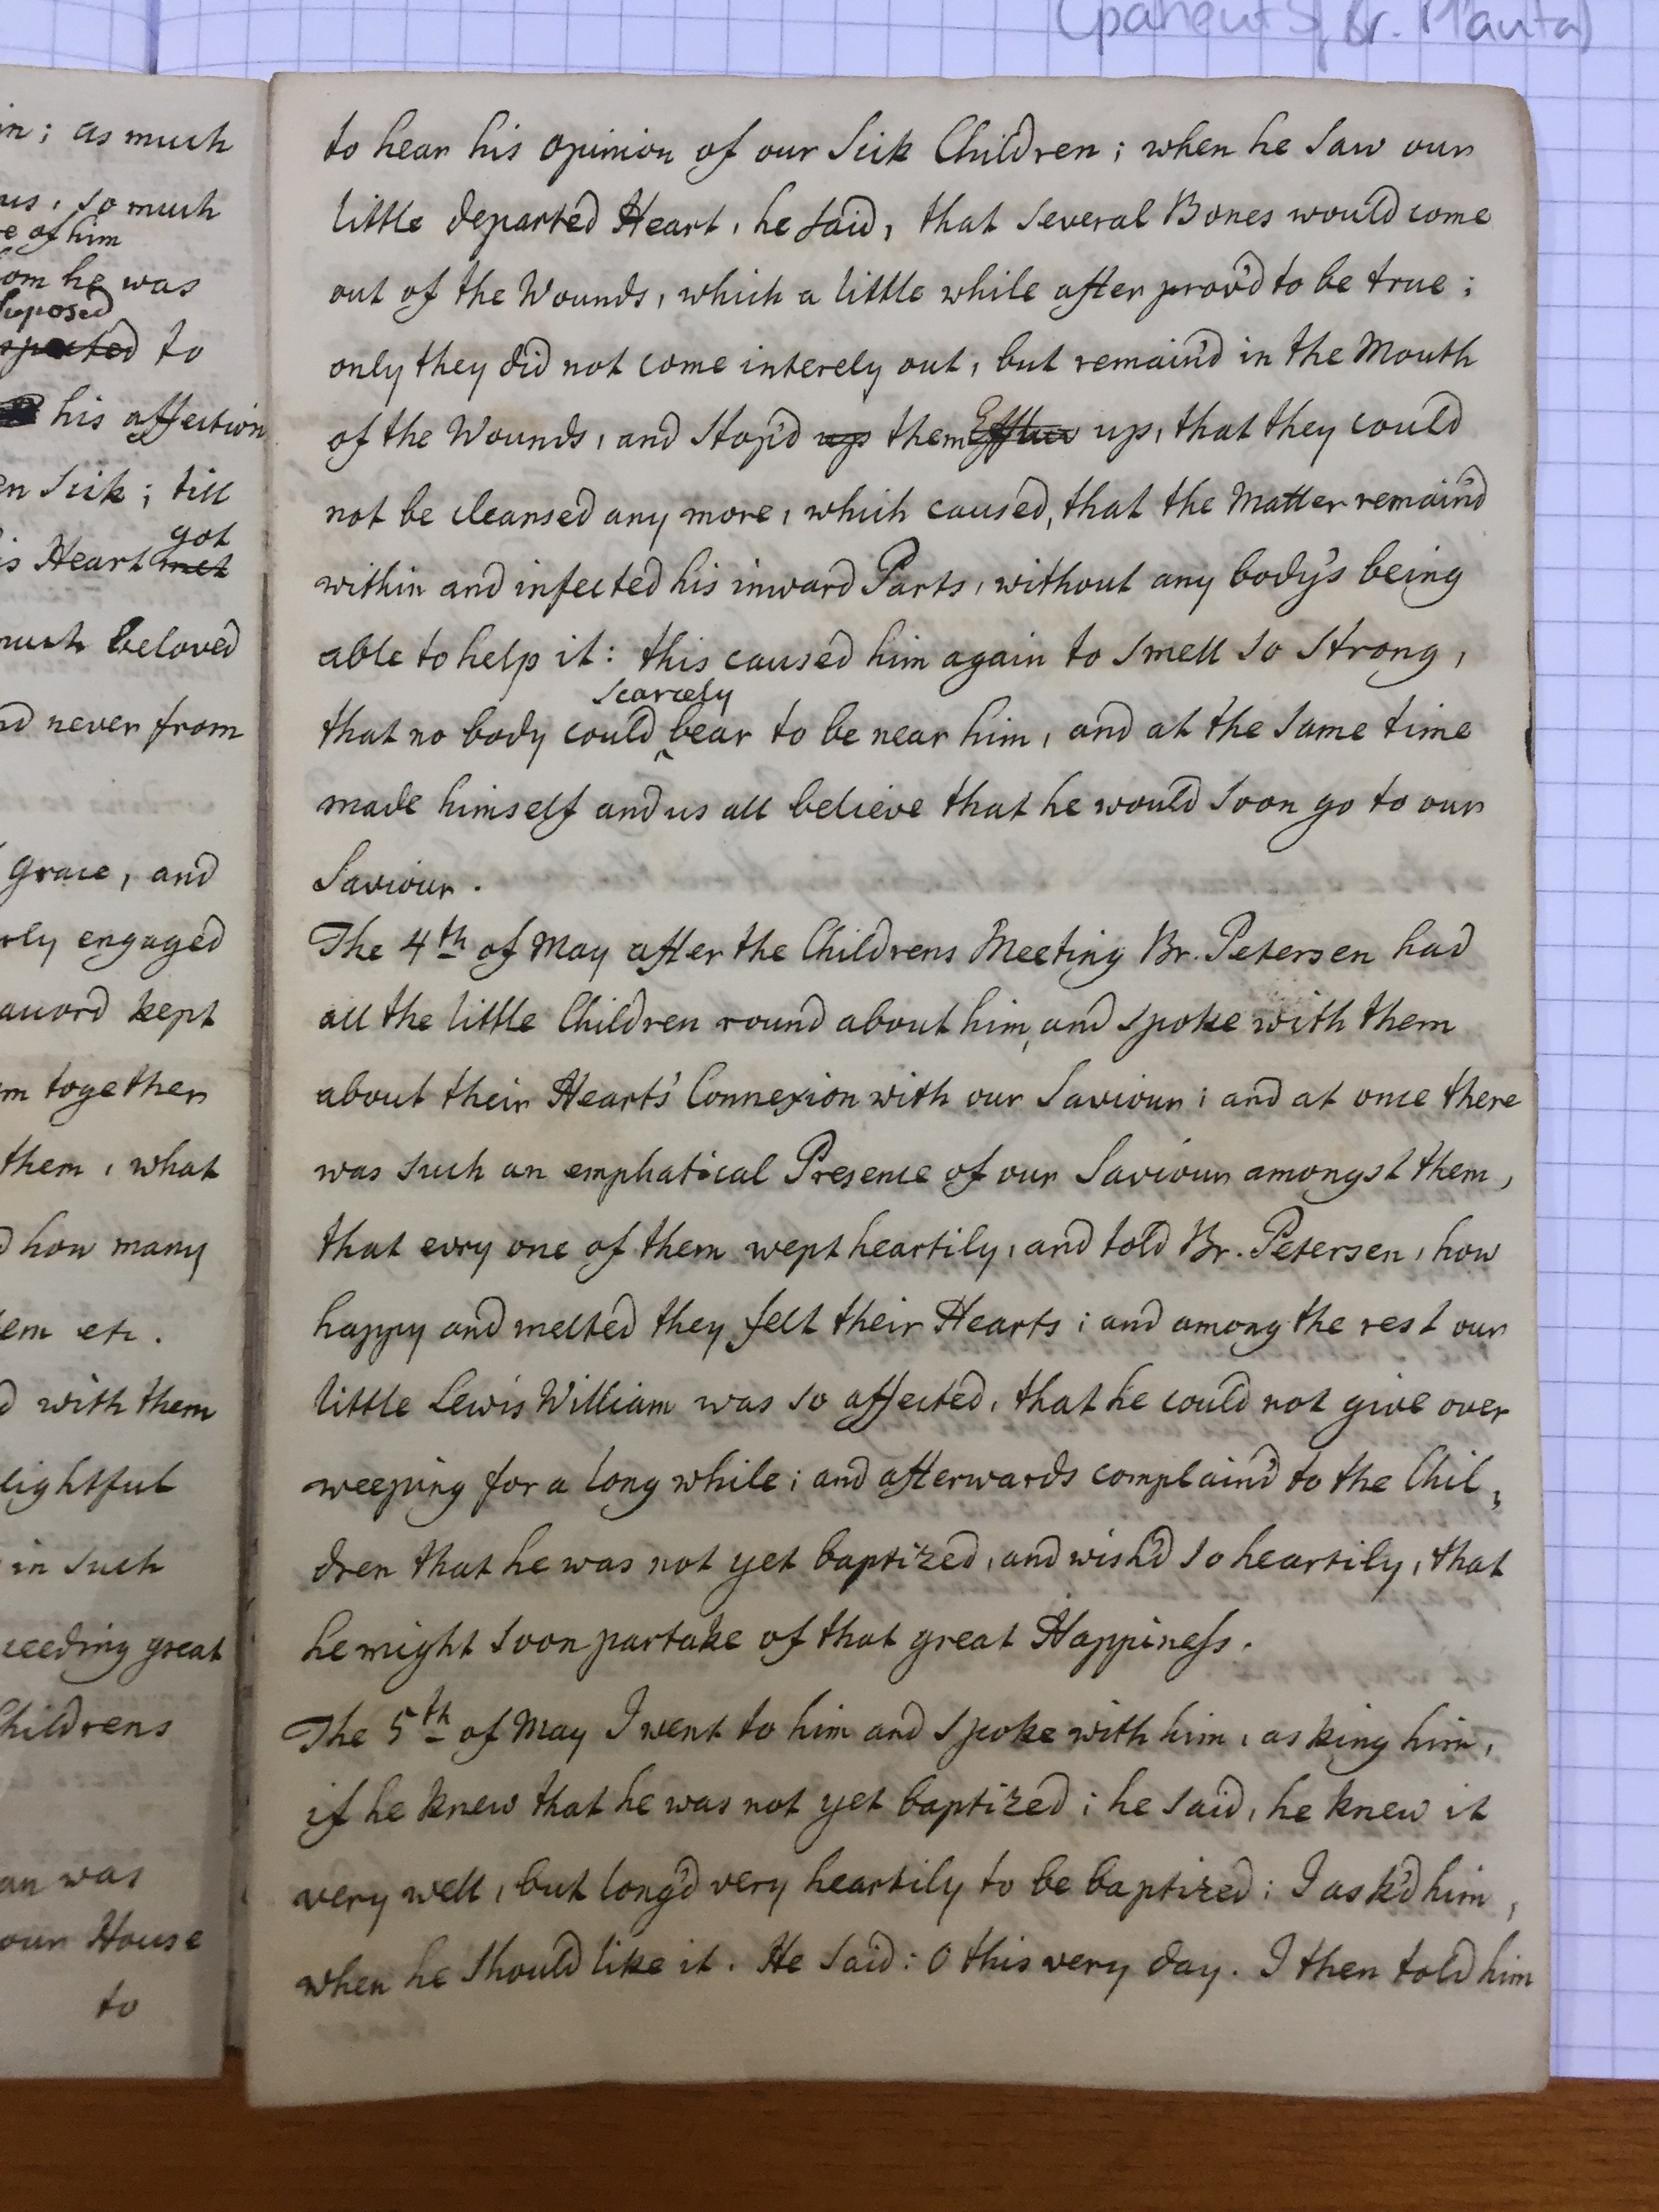 in; as much
us, so much
e of him
om he was
suposed
spected to
his affection
en sick; till
got
is Heart met
much beloved
nd never from
grace, and
rly engaged
accord kept
m together
them, what
d how many
em etc.
d with them
lightful
in such
ceeding great
Childrens
an was
our House
to
to hear his opinion of our Sick Children; when he saw our
little departed Heart, he said, that several Bones would come
out of the Wounds, which a little while after prov'd to be true;
only they did not come interely out, but remain'd in the Mouth
of the Wounds, and stop'd up them up, that they could
not be cleansed any more, which caused, that the Matter remain'd
within and infected his inward Parts, without any body's being
able to help it: this caused him again to smell so strong,
scarcely
that no body could ‸ bear to be near him, and at the same time
made himself and us all believe that he would soon go to our
Saviour.
The 4th of May after the Childrens Meeting Br. Petersen had
all the little Children round about him, and spoke with them
about their Hearts' Connexion with our Saviour; and at once there
was such an emphatical Presence of our Saviour amongst them,
that evry one of them wept heartily, and told Br. Petersen, how
happy and melted they felt their Hearts; and among the rest our
little Lewis William was so affected, that he could not give over
weeping for a long while; and afterwards complain'd to the Chil,
dren that he was not yet baptized, and wish'd so heartily, that
he might soon partake of that great Happiness.
The 5th of May I went to him and spoke with him, asking him,
if he knew that he was not yet baptized; he said, he knew it
very well, but long'd very heartily to be baptized; I ask'd him,
when he should like it. He said: O this very day. I then told him